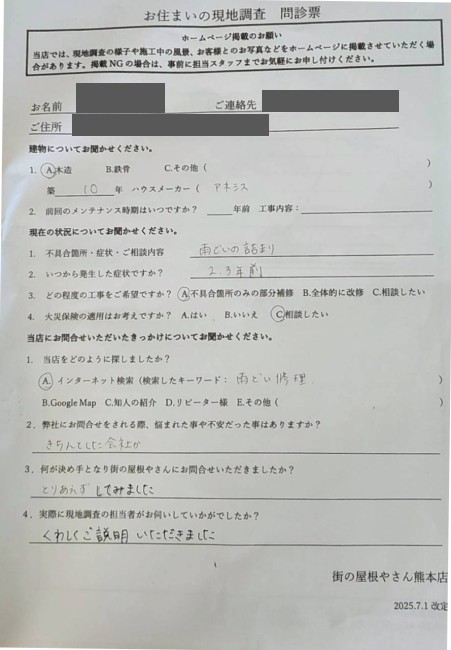 お住まいの現地調査　問診票
ホームページ掲載のお願い
当店では、現地調査の様子や施工中の風景、お客様とのお写真などをホームページに掲載させていただく場
合があります。掲載 NG の場合は、事前に担当スタッフまでお気軽にお申し付けください。
お名前　ご連絡先
ご住所
建物についてお聞かせください。
1. A.木造　B.鉄骨　C.その他（　）
築　10　年　ハウスメーカー（　アネシス　）
2. 前回のメンテナンス時期はいつですか？　年前　工事内容：
現在の状況についてお聞かせください。
1. 不具合箇所・症状・ご相談内容　雨どいの詰まり
2. いつから発生した症状ですか？　2.3年前
3. どの程度の工事をご希望ですか？　A.不具合箇所のみの部分補修　B.全体的に改修　C.相談したい
4. 火災保険の適用はお考えですか？　A.はい　B.いいえ　C.相談したい
当店にお問合せいただいたきっかけについてお聞かせください。
1. 当店をどのように探しましたか？
A. インターネット検索（検索したキーワード：　雨どい 修理　）
B.Google Map　C.知人の紹介　D.リピーター様　E.その他（　）
2．弊社にお問合せをされる際、悩まれた事や不安だった事はありますか？
きちんとした会社か
3．何が決め手となり街の屋根やさんにお問合せいただきましたか？
とりあえず してみました
4．実際に現地調査の担当者がお伺いしていかがでしたか？
くわしくご説明 いただきました
1
街の屋根やさん熊本店
2025.7.1 改定